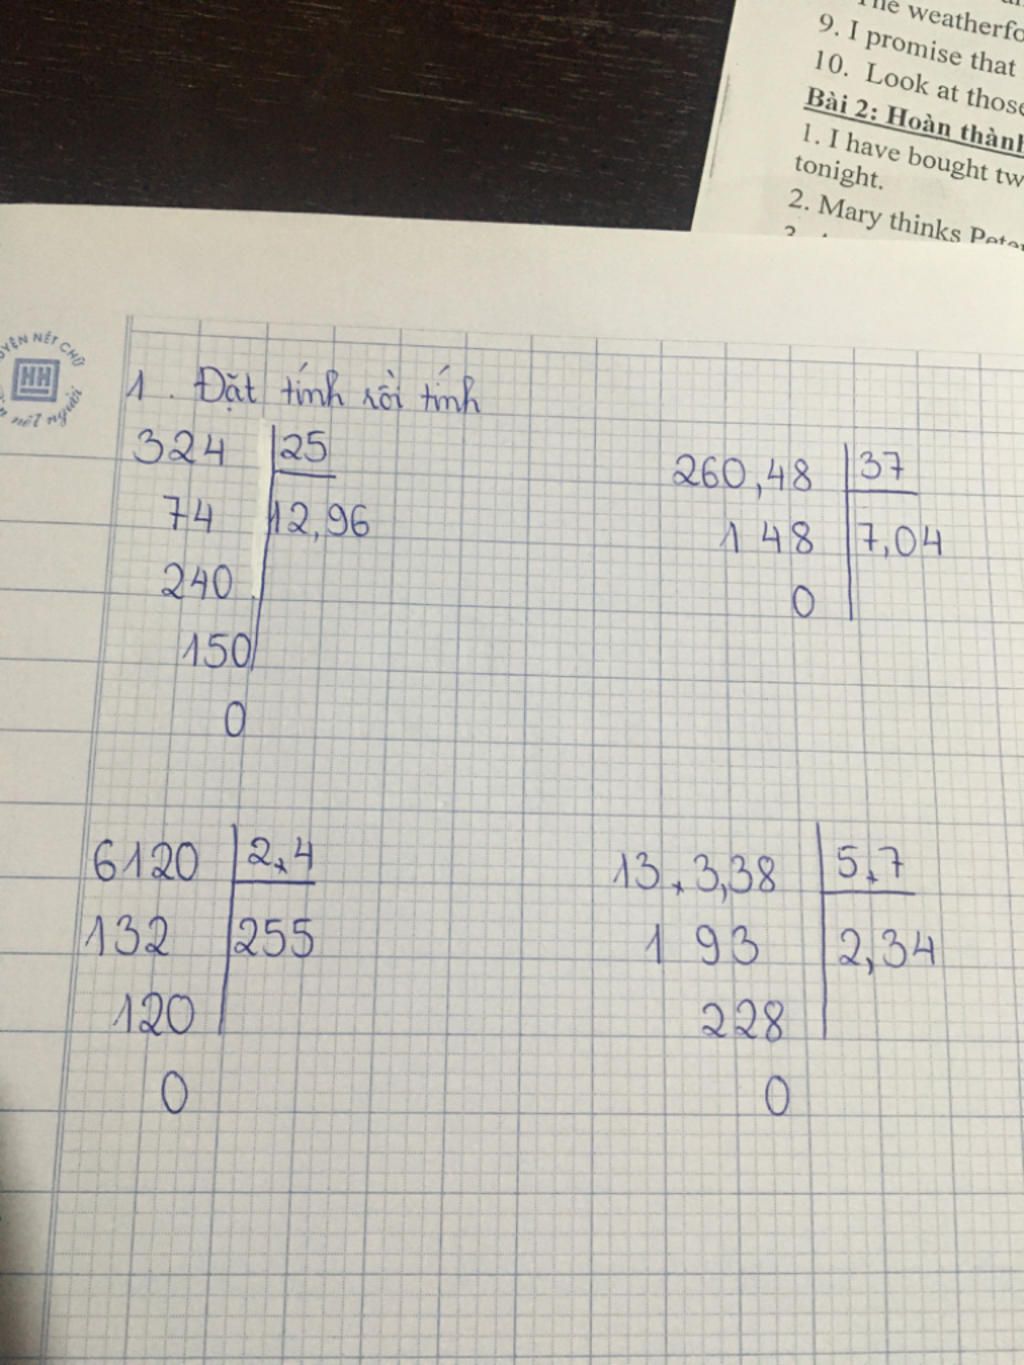 9. I promise that
10. Look at those
Bài 2: Hoàn thành
1. I have bought
tonight.
2. Mary thinks
NÉT CHỮ
HH
nết người
1. Đặt tính rồi tính
324 25
74 12,96
240
150
0
260,48 37
148 7,04
0
6120 2,4
132 255
120
0
13,3,38 5,7
193 2,34
228
0